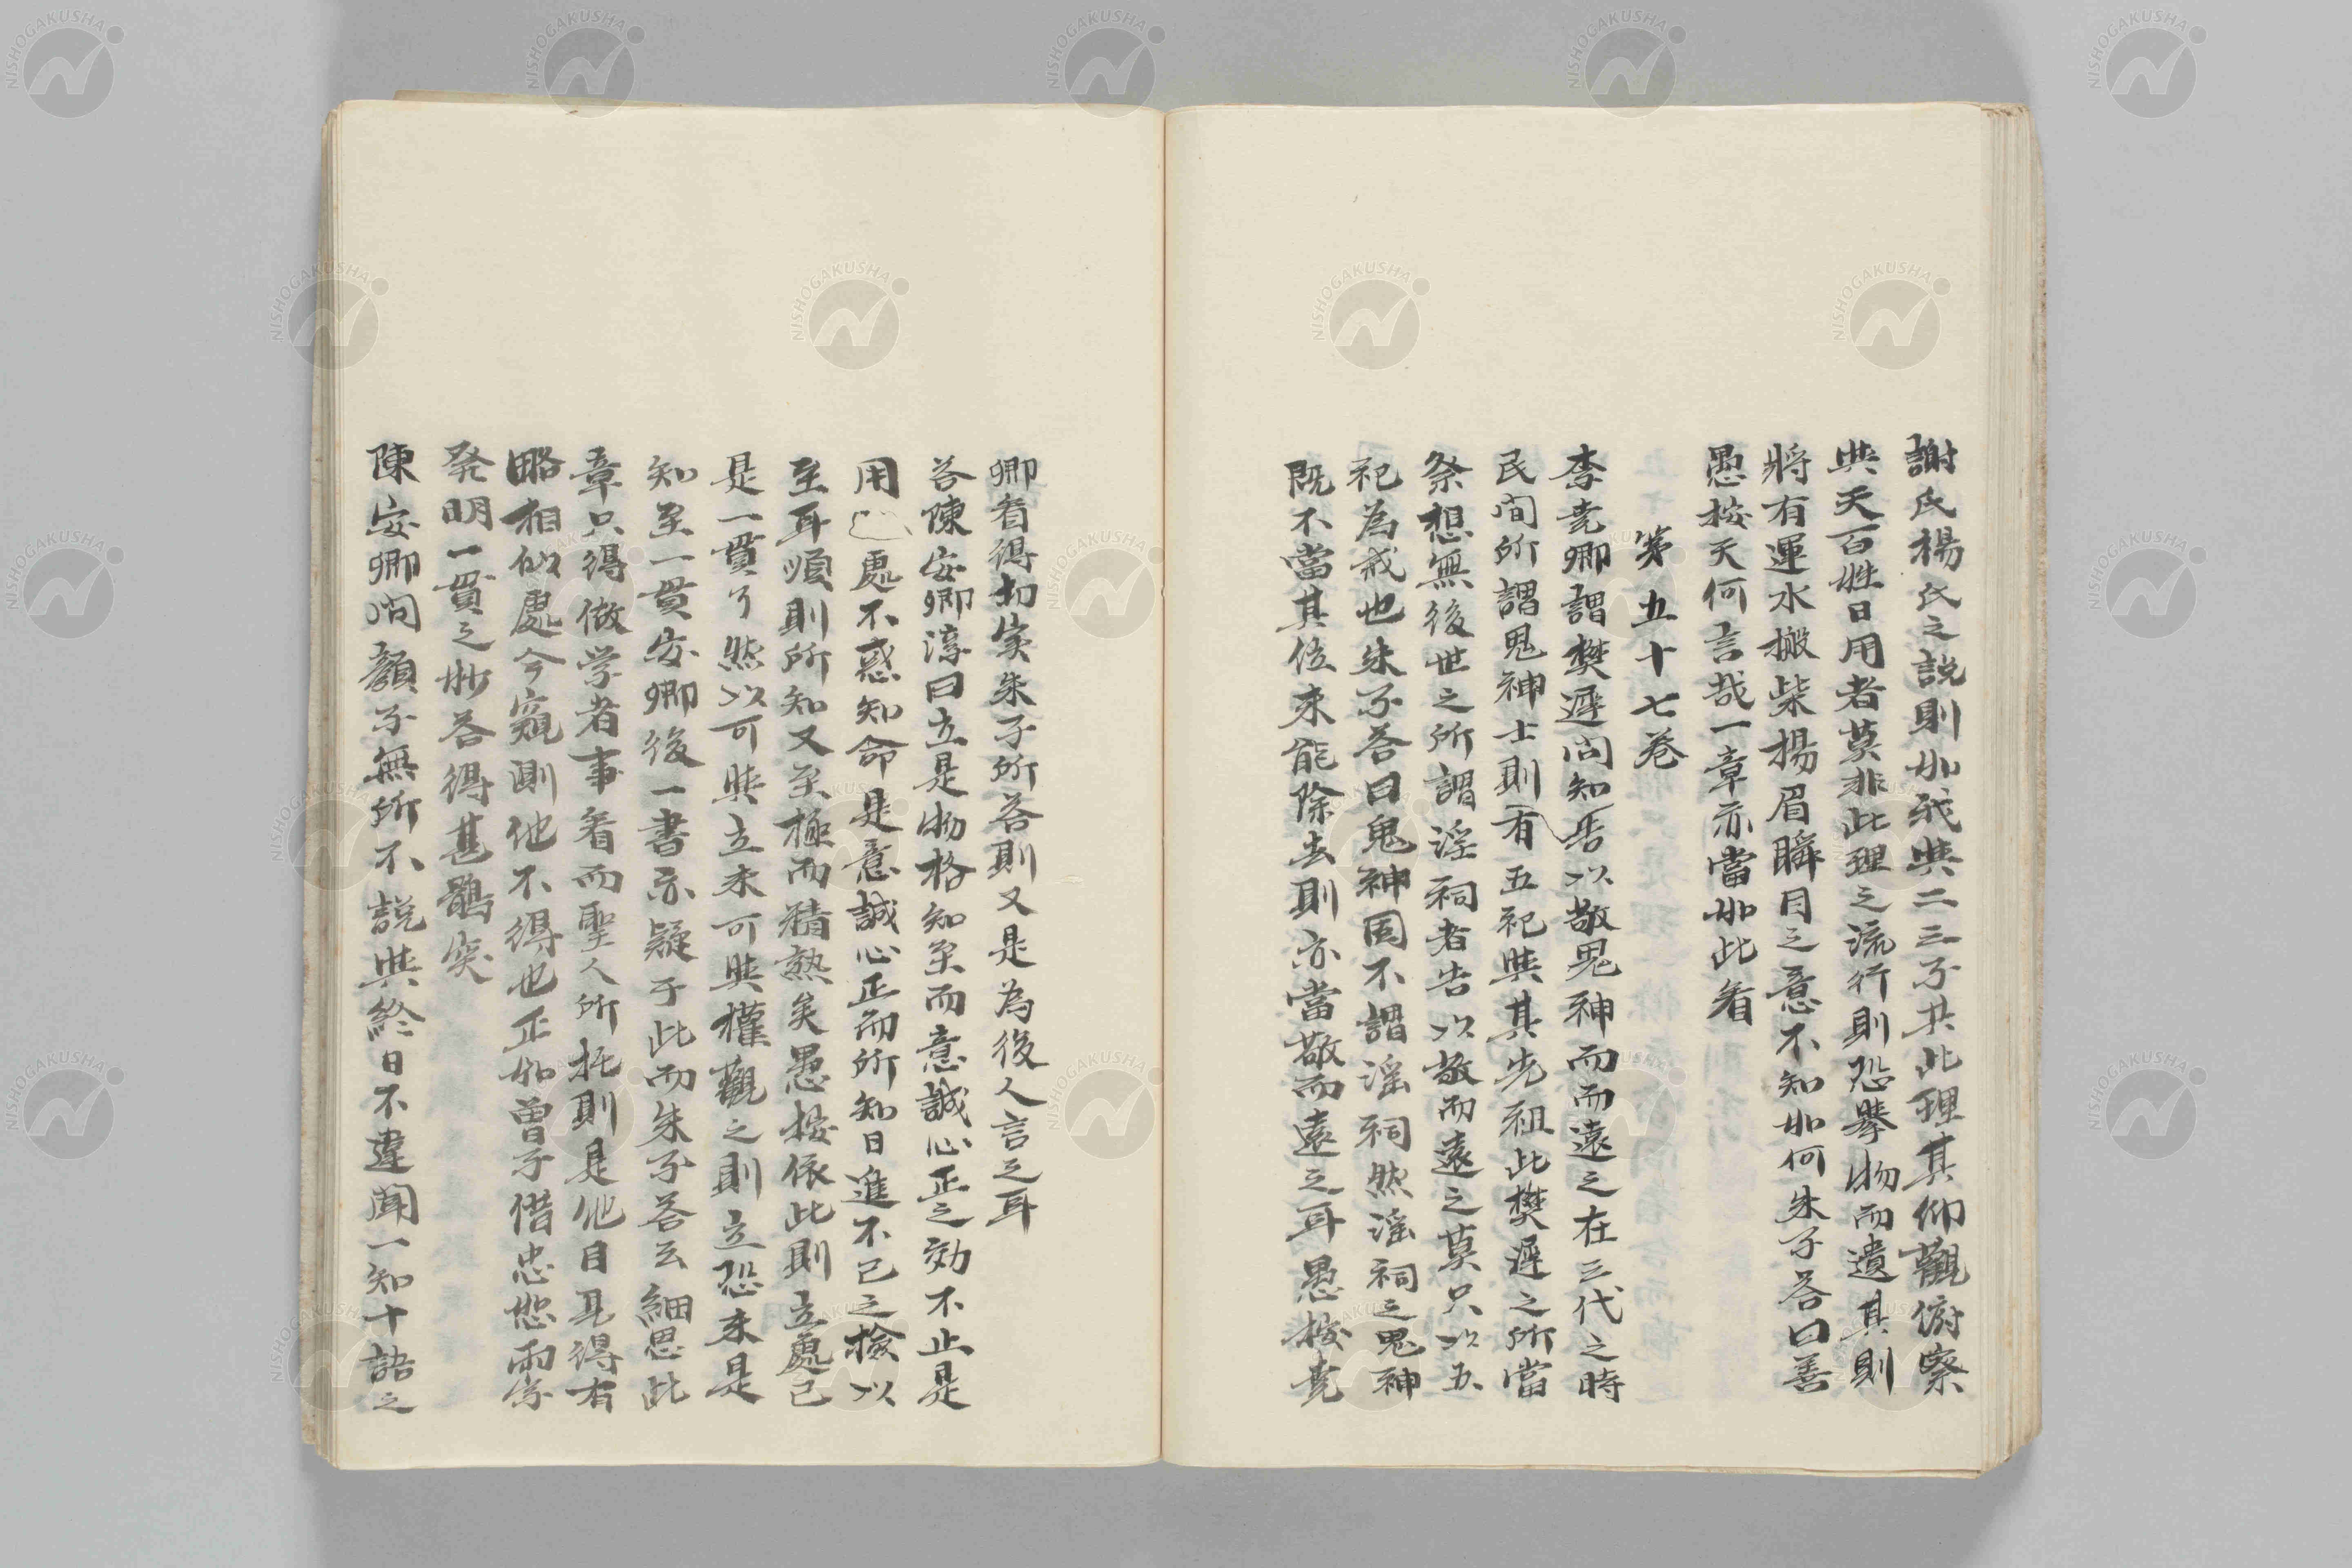 謝氏楊氏之説則如我與二三子共此理其仰觀俯察
與天百姓日用者莫非此理之流行則恐擧物而遺其則
將有運水搬柴揚眉瞬目之意不知如何朱子答曰善
愚按天何言哉一章亦當如此看
第五十七巻
李尭卿謂樊遲問知告以敬鬼神而而遠之在三代之時
民间所謂鬼神士則有五祀與其先祖此樊遲之所當
祭想無後世之所謂淫祠者告以敬而遠之莫只以五
祀為戒也朱子答曰鬼神固不謂淫祠然淫祠之鬼神
既不當其位未能除去則亦當敬而遠之耳愚按尭
卿看得切実朱子所答則又是為後人言之耳
答陳安卿淳曰立是物格知至而意誠心正之効不止是
用處不惑知命是意誠心正而所知日進不已之檢以
至耳順則所知又至極而精熟矣愚按依此則立處已
是一貫了然以可與立未可與權觀之則立恐未是
知至一貫安卿後一書亦疑于此而朱子答云細思此
章只得做学者事看而聖人所托則是他自見得有
略相似處今窺測他不得也正如曽子借忠恕両字
発明一貫之妙答得甚鶻突
陳安卿问顔子無所不説與終日不違聞一知十語之
NISHOGAKUSHA